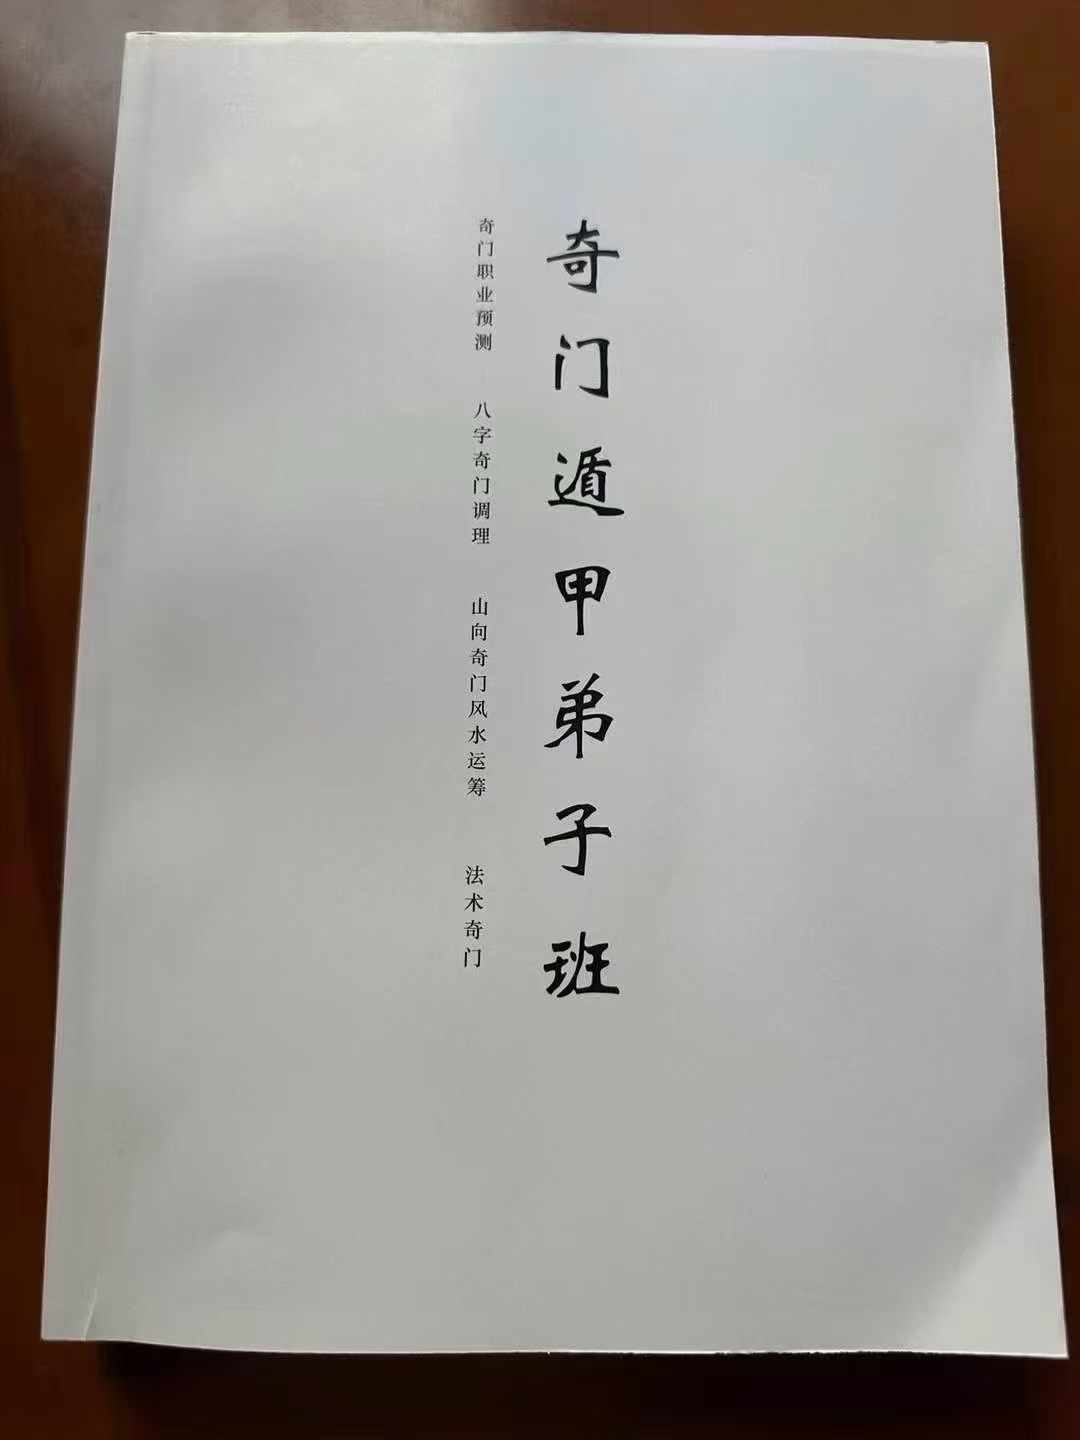 奇门遁甲弟子班
奇门职业预测 八字奇门调理 山向奇门风水运筹 法术奇门